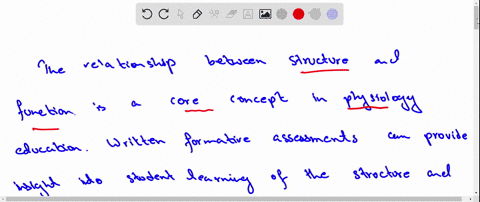 The relationship between structure and
function is a core concept in physiology
education. Written formative assessments can provide
insight into student learning of the structure and